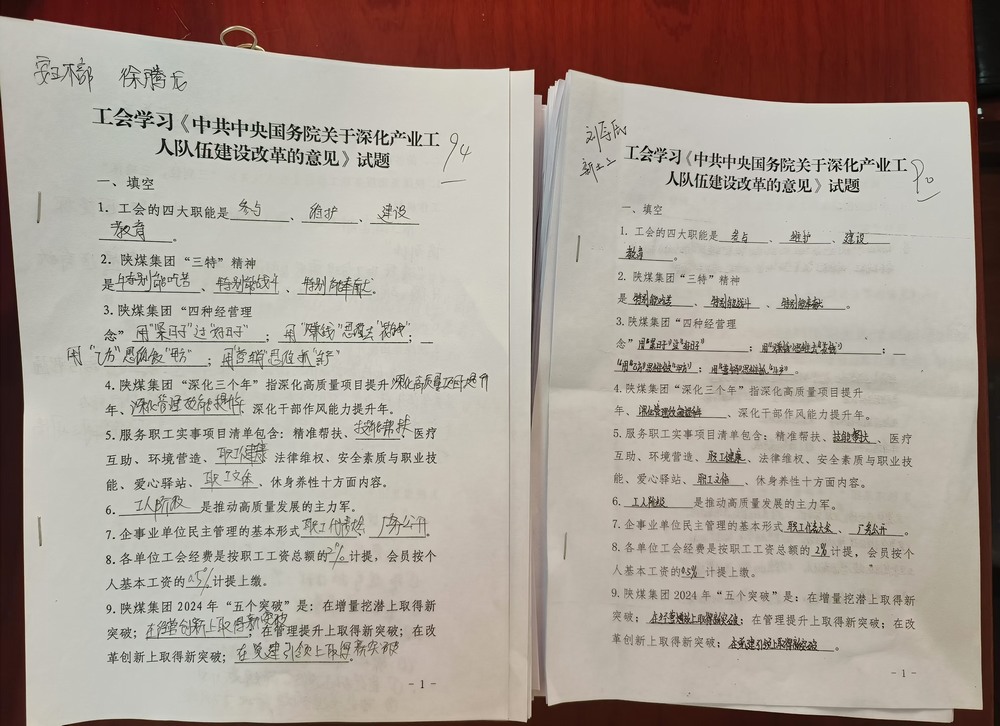 安环部 徐腾龙
工会学习《中共中央国务院关于深化产业工
人队伍建设改革的意见》试题
94
一、填空
1. 工会的四大职能是 参与 、 维护 、 建设
教育 。
2. 陕煤集团“三特”精神
是 特别能吃苦 、 特别能战斗 、 特别能奉献 。
3. 陕煤集团“四种经营理
念” 用“紧日子”过“好日子” ; 用“赚钱”思维去“花钱” ;
用“乙方”思维做“甲方” ; 用“营销”思维抓“生产”
4. 陕煤集团“深化三个年”指深化高质量项目提升 深化高质量项目提升
年、 深化管理效能提升年 、深化干部作风能力提升年。
5. 服务职工实事项目清单包含:精准帮扶、 技能帮扶 、医疗
互助、环境营造、 职工健康 法律维权、安全素质与职业技
能、爱心驿站、 职工文体 、休身养性十方面内容。
6. 工人阶级 是推动高质量发展的主力军。
7. 企事业单位民主管理的基本形式 职工代表大会 、 厂务公开 。
8. 各单位工会经费是按职工工资总额的 2% 计提,会员按个
人基本工资的 0.5% 计提上缴。
9. 陕煤集团 2024 年“五个突破”是:在增量挖潜上取得新
突破; 在经营创新上取得新突破 ;在管理提升上取得新突破;在改
革创新上取得新突破; 在党建引领上取得新突破 。
- 1 -
刘
工会学习《中共中央国务院关于深化产业工
人队伍建设改革的意见》试题
90
一、填空
1. 工会的四大职能是 参与 、 维护 、 建设
教育 。
2. 陕煤集团“三特”精神
是 特别能吃苦 、 特别能战斗 、 特别能奉献 。
3. 陕煤集团“四种经营理
念” 用“紧日子”过“好日子” ; 用“赚钱”思维去“花钱” ;
用“乙方”思维做“甲方” ; 用“营销”思维抓“生产” 。
4. 陕煤集团“深化三个年”指深化高质量项目提升
年、 深化管理效能提升年 、深化干部作风能力提升年。
5. 服务职工实事项目清单包含:精准帮扶、 技能 、医疗
互助、环境营造、 职工健康 、法律维权、安全素质与职业技
能、爱心驿站、 职工文体 、休身养性十方面内容。
6. 工人阶级 是推动高质量发展的主力军。
7. 企事业单位民主管理的基本形式 职工代表大会 、 厂务公开 。
8. 各单位工会经费是按职工工资总额的 2% 计提,会员按个
人基本工资的 0.5% 计提上缴。
9. 陕煤集团 2024 年“五个突破”是:在增量挖潜上取得新
突破; 上取得新突破 ;在管理提升上取得新突破;在改
革创新上取得新突破; 在党建引领上取得新突破 。
- 1 -